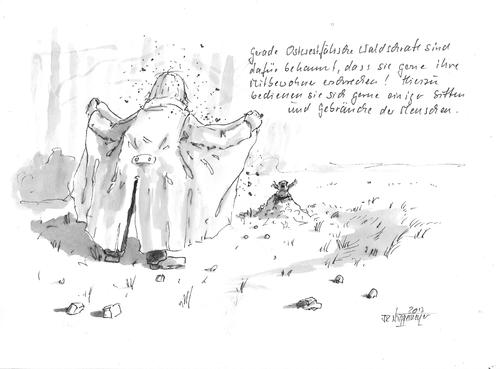 Gerade Ostwestfälische Waldschrate sind
dafür bekannt, dass sie gerne ihre
Mitbewohner erschrecken! Hierzu
bedienen sie sich gerne einiger Sitten
und Gebräuche der Menschen.
2017